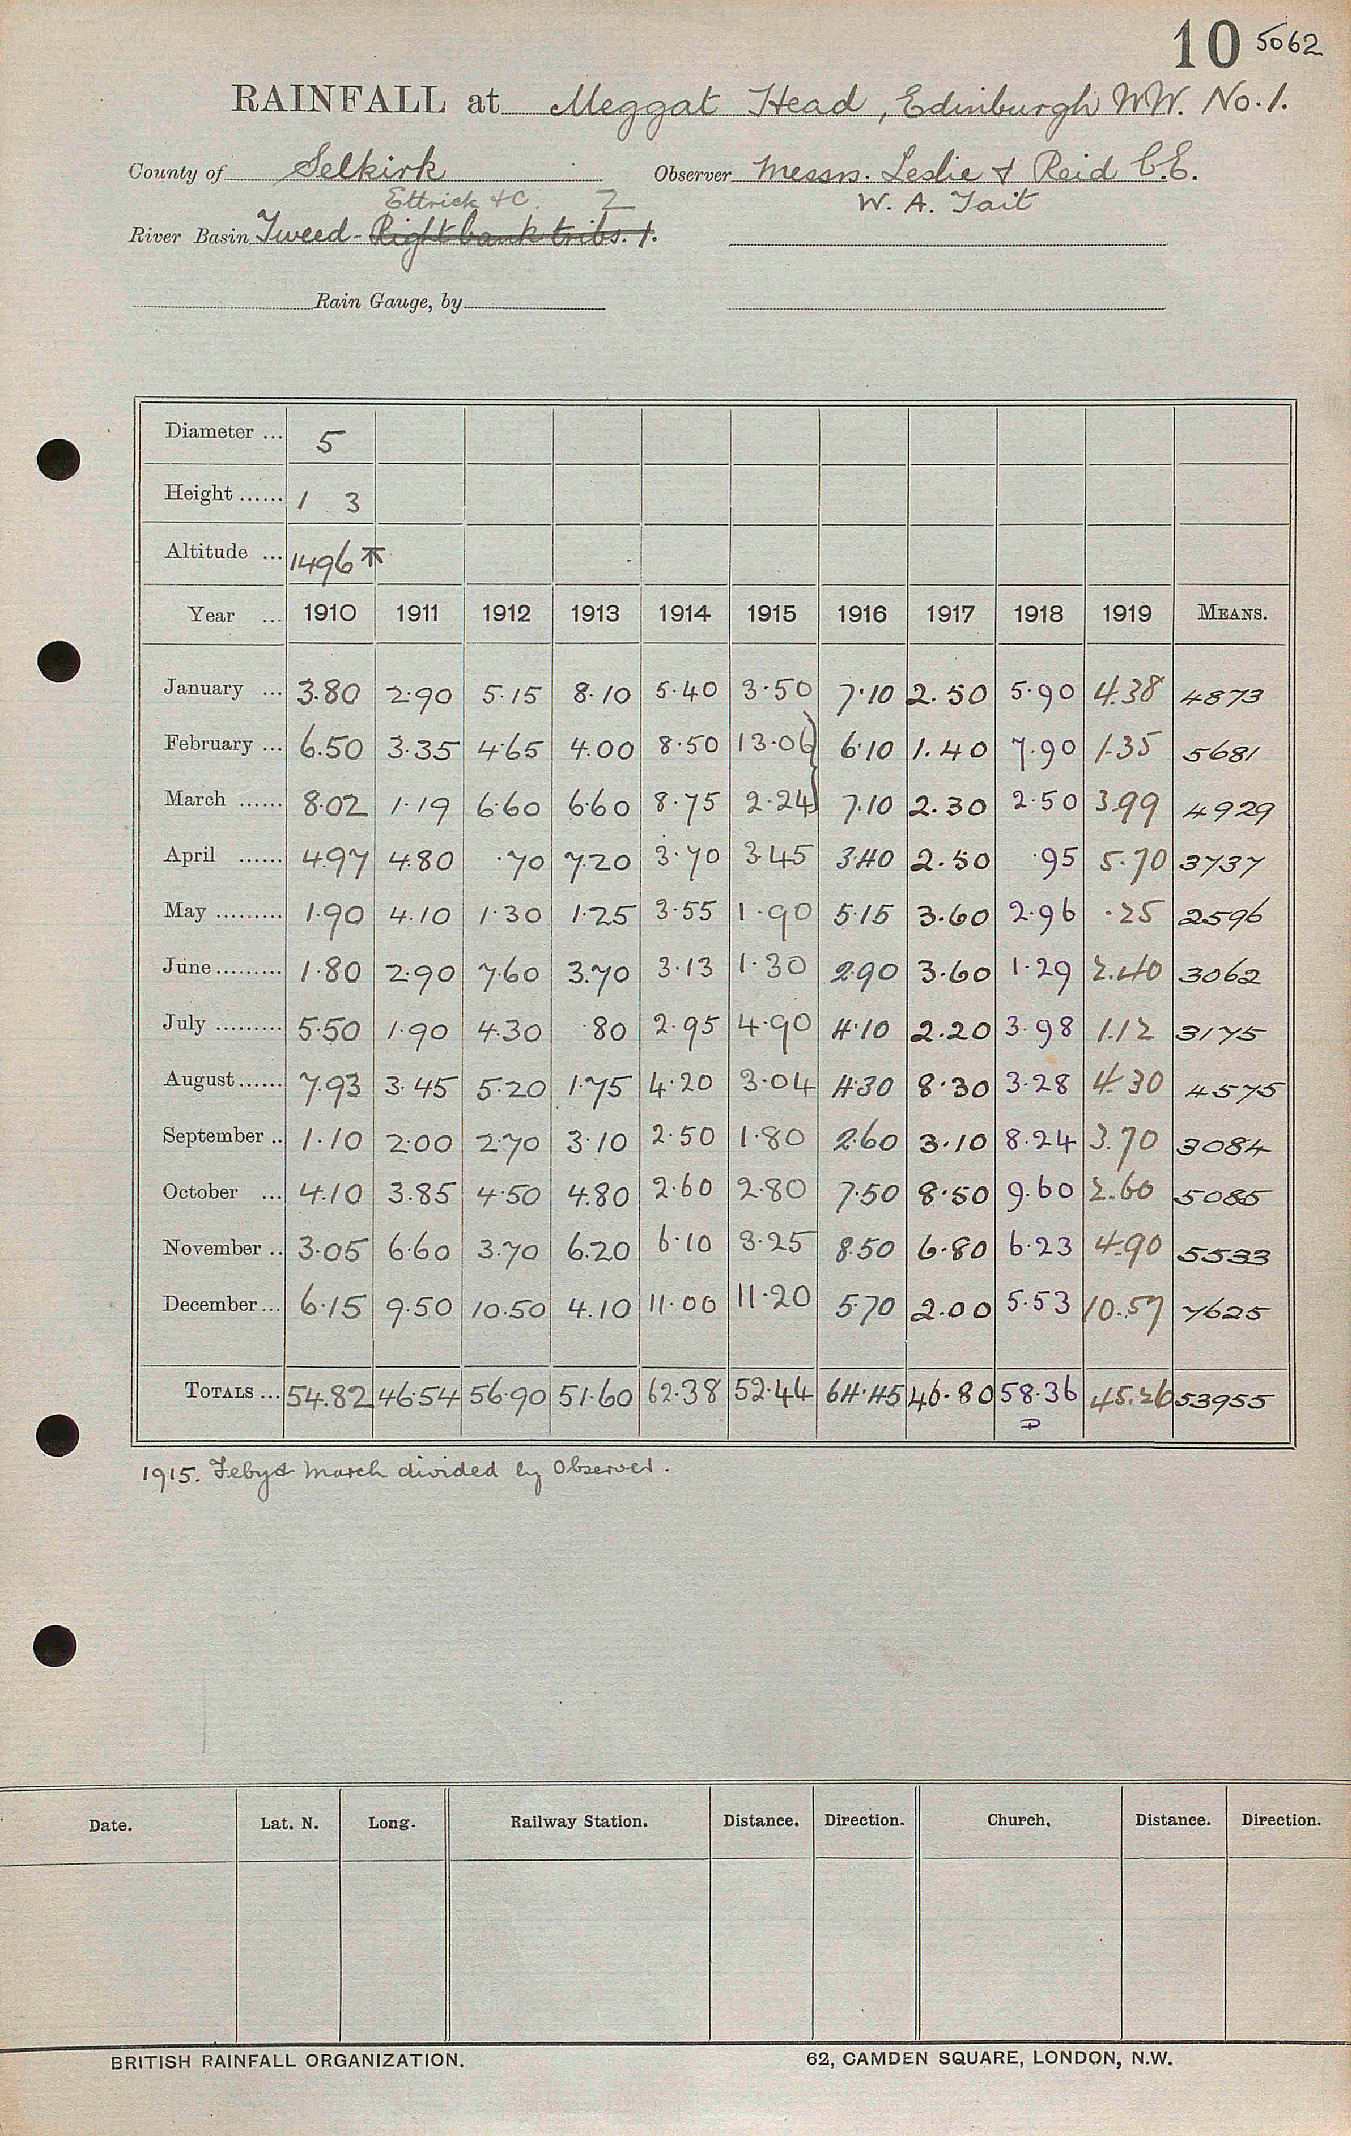 10 5062
RAINFALL at Meggat Head, Edinburgh WW. No. 1.
County of Selkirk Observer Messrs. Leslie & Reid C.E.
Ettrick &C. 2 W. A. Tait
River Basin Tweed - Right bank tribs. 1.
Rain Gauge, by
Diameter ... 5
Height ...... 1 3
Altitude ... 1496
Year ... 1910 1911 1912 1913 1914 1915 1916 1917 1918 1919 MEANS.
January ... 3.80 2.90 5.15 8.10 5.40 3.50 7.10 2.50 5.90 4.38 4873
February ... 6.50 3.35 4.65 4.00 8.50 13.06 6.10 1.40 7.90 1.35 5681
March ...... 8.02 1.19 6.60 6.60 8.75 2.24 7.10 2.30 2.50 3.99 4929
April ...... 4.97 4.80 .70 7.20 3.70 3.45 3.40 2.50 .95 5.70 3737
May ......... 1.90 4.10 1.30 1.25 3.55 1.90 5.15 3.60 2.96 .25 2596
June ......... 1.80 2.90 7.60 3.70 3.13 1.30 2.90 3.60 1.29 2.40 3062
July ......... 5.50 1.90 4.30 .80 2.95 4.90 4.10 2.20 3.98 1.12 3175
August ...... 7.93 3.45 5.20 1.75 4.20 3.04 4.30 8.30 3.28 4.30 4575
September .. 1.10 2.00 2.70 3.10 2.50 1.80 2.60 3.10 8.24 3.70 3084
October ... 4.10 3.85 4.50 4.80 2.60 2.80 7.50 8.50 9.60 2.60 5085
November .. 3.05 6.60 3.70 6.20 6.10 3.25 8.50 6.80 6.23 4.90 5533
December ... 6.15 9.50 10.50 4.10 11.00 11.20 5.70 2.00 5.53 10.57 7625
TOTALS ... 54.82 46.54 56.90 51.60 62.38 52.44 64.45 46.80 58.36 45.26 53955
1915. Feby & March divided by Observer.
Date. Lat. N. Long. Railway Station. Distance. Direction. Church. Distance. Direction.
BRITISH RAINFALL ORGANIZATION. 62, CAMDEN SQUARE, LONDON, N.W.